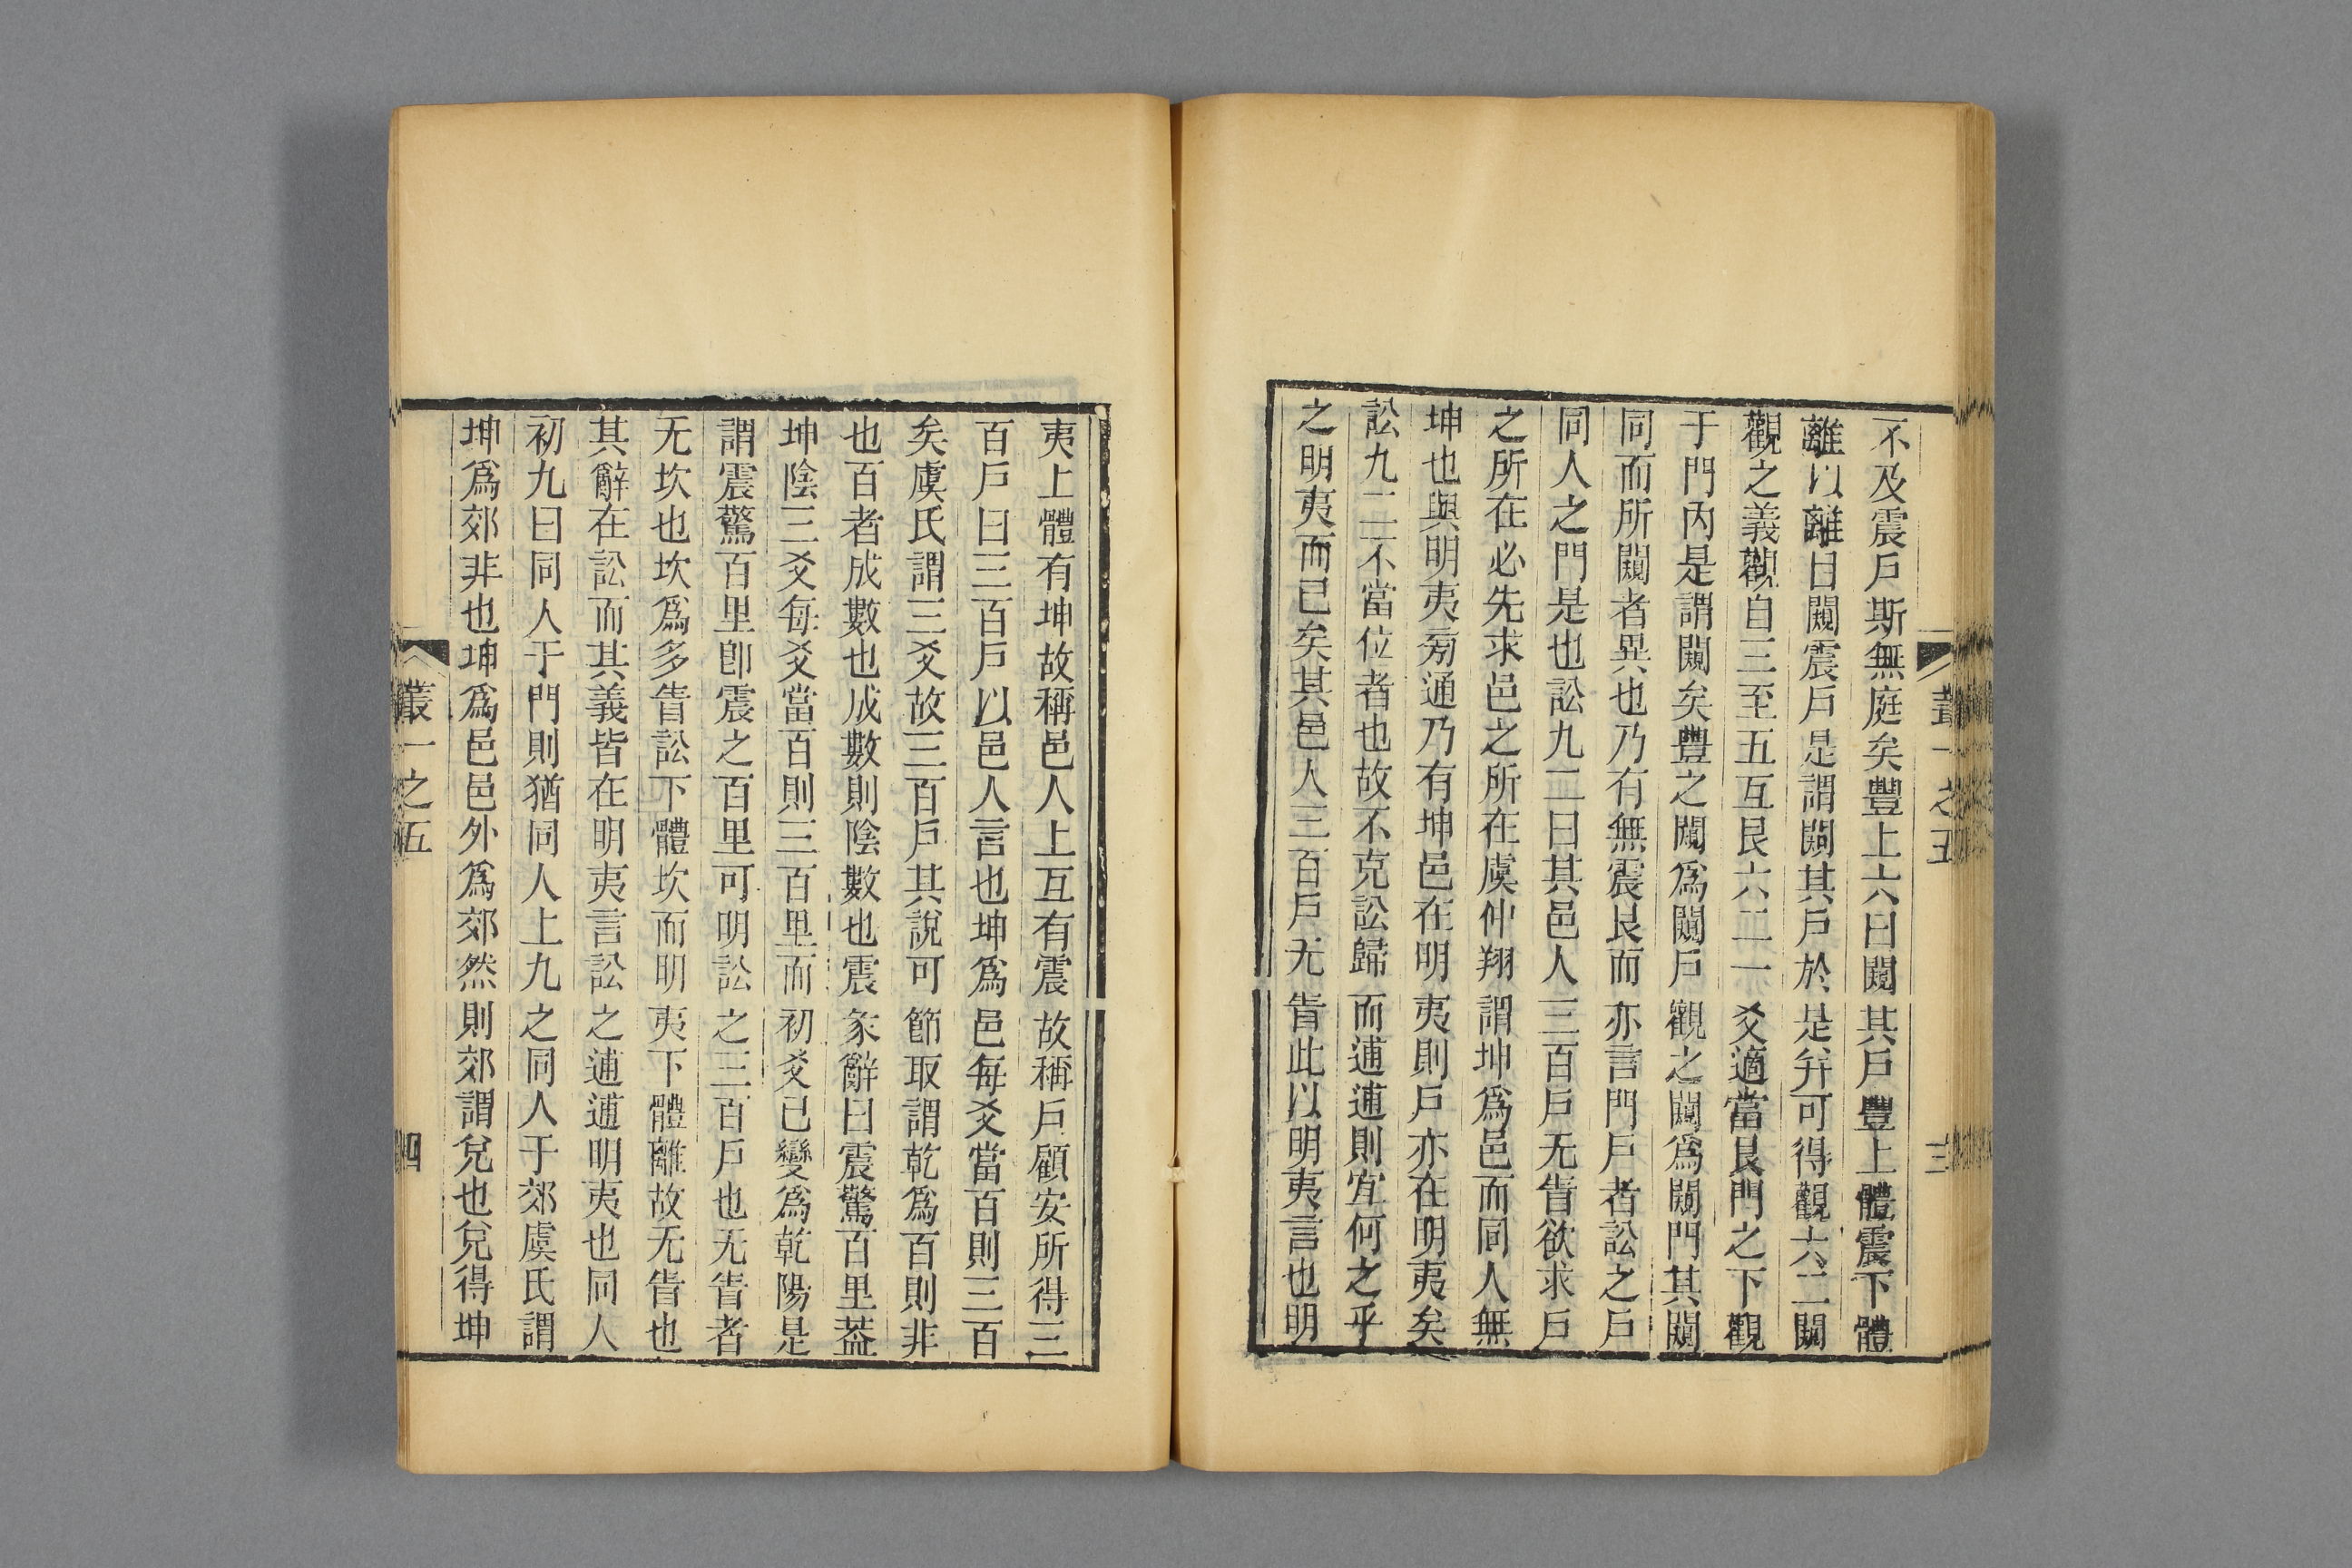 不及震戶斯無庭矣豐上六曰闚其戶豐上體震下體
離以離目闚震戶是謂闚其戶於是弁可得觀六二闚
觀之義觀自三至五互艮六二一爻適當艮門之下觀
于門內是謂闚矣豐之闚爲闚戶觀之闚爲闚門其闚
同而所闚者異也乃有無震艮而亦言門戶者訟之戶
同人之門是也訟九二曰其邑人三百戶无眚欲求戶
之所在必先求邑之所在虞仲翔謂坤爲邑而同人無
坤也與明夷旁通乃有坤邑在明夷則戶亦在明夷矣
訟九二不當位者也故不克訟歸而逋逋則宜何之乎
之明夷而已矣其邑人三百戶无眚此以明夷言也明
叢一之五
三
夷上體有坤故稱邑人上互有震故稱戶顧安所得三
百戶曰三百戶以邑人言也坤爲邑每爻當百則三百
矣虞氏謂三爻故三百戶其說可節取謂乾爲百則非
也百者成數也成數則陰數也震彖辭曰震驚百里葢
坤陰三爻每爻當百則三百里而初爻已變爲乾陽是
謂震驚百里卽震之百里可明訟之三百戶也无眚者
无坎也坎爲多眚訟下體坎而明夷下體離故无眚也
其辭在訟而其義皆在明夷言訟之逋逋明夷也同人
初九曰同人于門則猶同人上九之同人于郊虞氏謂
坤爲郊非也坤爲邑邑外爲郊然則郊謂兌也兌得坤
叢一之五
四